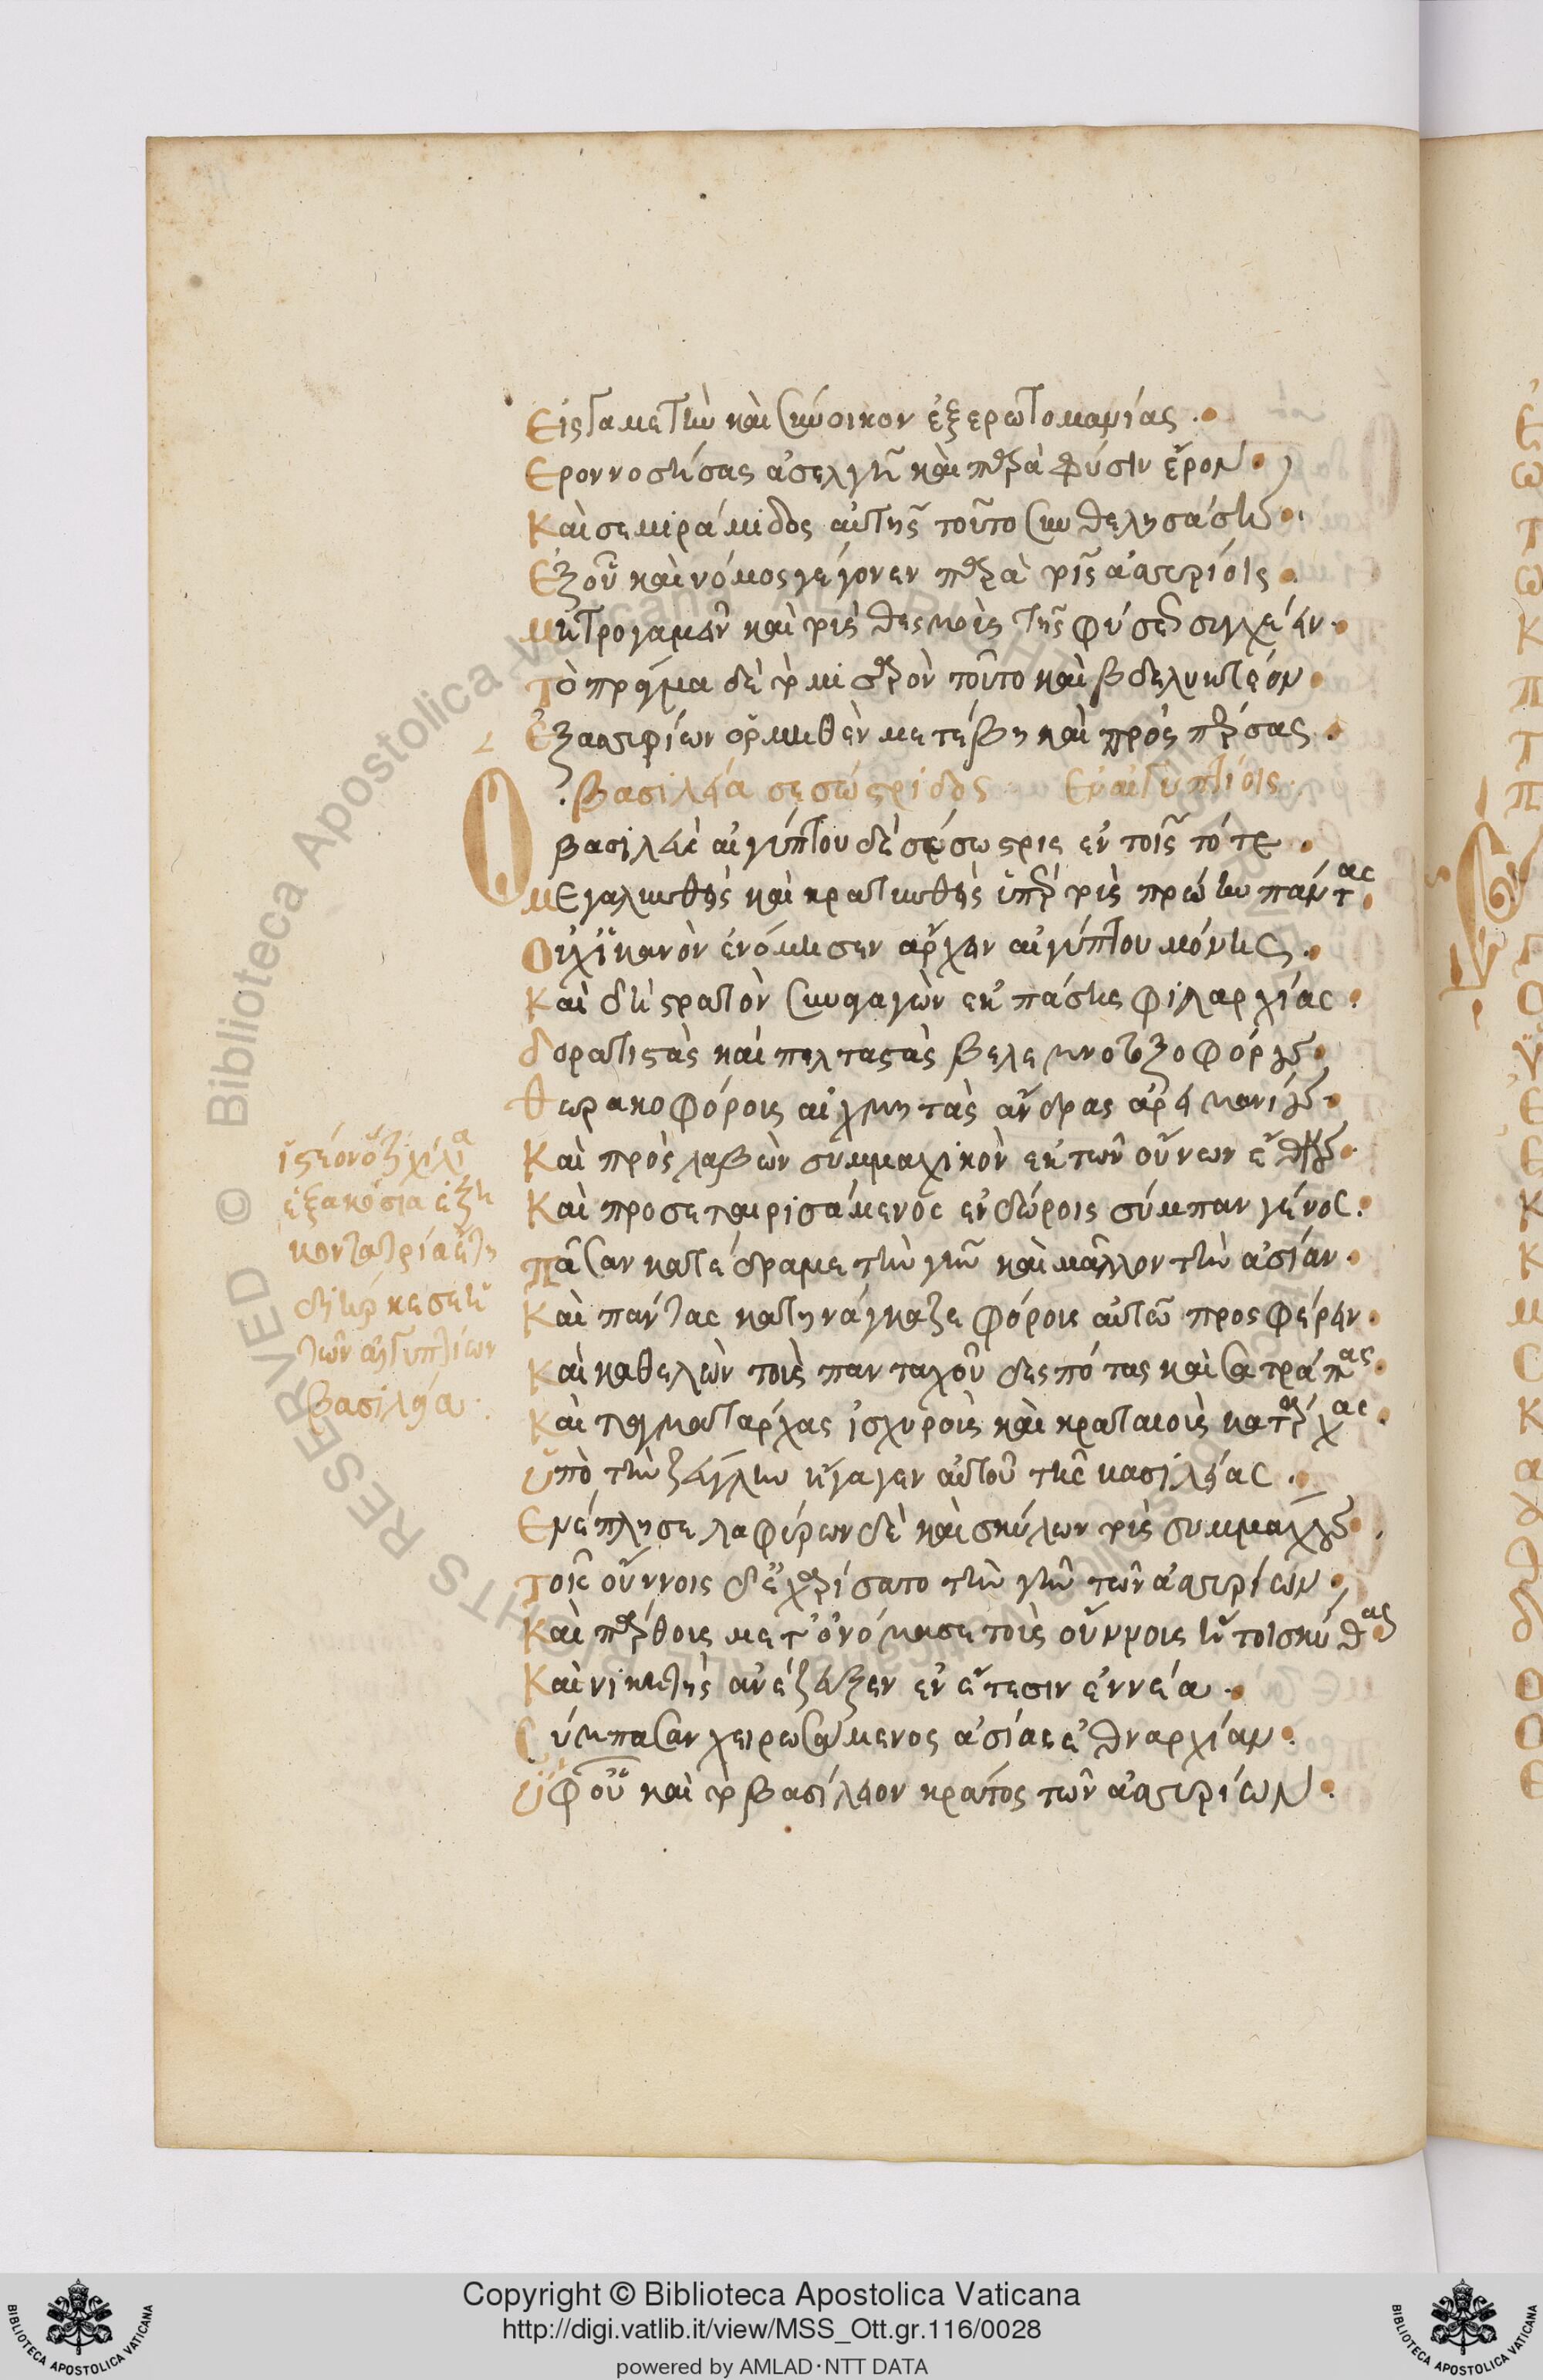 Εἰς γαμετὴν καὶ σύνοικον ἐξ ἐρωτομανίας.
Ἔρον νοσήσας ἀσελγῆ καὶ παρὰ φύσιν ἔρον.
Καὶ σεμιράμιδος αὐτῆς τοῦτο συνθελησάσης.
Ἐξ οὗ καὶ νόμος γέγονεν παρὰ τοῖς ἀσσυρίοις.
μητρογαμεῖν καὶ τοὺς θεσμοὺς τῆς φύσεως συγχέειν.
Τὸ πρᾶγμα δὲ τὸ μιαρὸν τοῦτο καὶ βδελυκτέον.
Ἐξ ἀσσυρίων ὁρμηθὲν μετέβη καὶ πρὸς πέρσας.
Βασιλεία σεσώστριδος Ἐν αἰγυπτίοις
Ο βασιλεὺς αἰγύπτου δὲ σέσωστρις ἐν τοῖς τότε.
μεγαλυνθεὶς καὶ κρατυνθεὶς ὑπὲρ τοὺς πρώην πάντας
Οὐχ ἱκανὸν ἐνόμισεν ἄρχειν αἰγύπτου μόνης.
Καὶ δὴ στρατὸν συναγαγὼν ἐκ πάσης φιλαρχίας.
δορατιστὰς καὶ πελταστὰς βελεμνοτοξοφόρους
θωρακοφόρους αἰχμητὰς ἄνδρας ἀρειμανίους
Καὶ προσλαβὼν συμμαχικὸν ἐκ τῶν οὔννων ἔθνους
Καὶ προσεταιρισάμενος ἐν δώροις σύμπαν γένος.
πᾶσαν κατέδραμε τὴν γῆν καὶ μᾶλλον τὴν ἀσίαν.
Καὶ πάντας κατηνάγκαζε φόρους αὐτῷ προσφέρειν.
Καὶ καθελὼν τοὺς πανταχοῦ δεσπότας καὶ σατράπας
Καὶ ταγματάρχας ἰσχυροὺς καὶ κραταιοὺς κατάρχας
Ὑπὸ τὴν ζεύγλην ἤγαγεν αὐτοῦ τῆς βασιλείας.
Ἐνέπλησε λαφύρων δὲ καὶ σκύλων τοὺς συμμάχους
Τοῖς οὔννοις δ' ἐχαρίσατο τὴν γῆν τῶν ἀσσυρίων.
Καὶ πάρθους μετονόμασε τοὺς οὔννους ἤτοι σκύθας
Καὶ νικητὴς ἀνέζευξεν ἐν ἔτεσιν ἐννέα.
Σύμπασαν χειρωσάμενος ἀσίας ἐθναρχίαν.
Ὑφ' οὗ καὶ τὸ βασίλειον κράτος τῶν ἀσσυρίων.
ἰστέον ὅτι χίλια
ἑξακόσια ἑξή
κοντα τρία ἔτη
διήρκεσε
τῶν αἰγυπτίων
βασιλεία
Copyright © Biblioteca Apostolica Vaticana
http://digi.vatlib.it/view/MSS_Ott.gr.116/0028
powered by AMLAD·NTT DATA
BIBLIOTECA APOSTOLICA VATICANA
BIBLIOTECA APOSTOLICA VATICANA